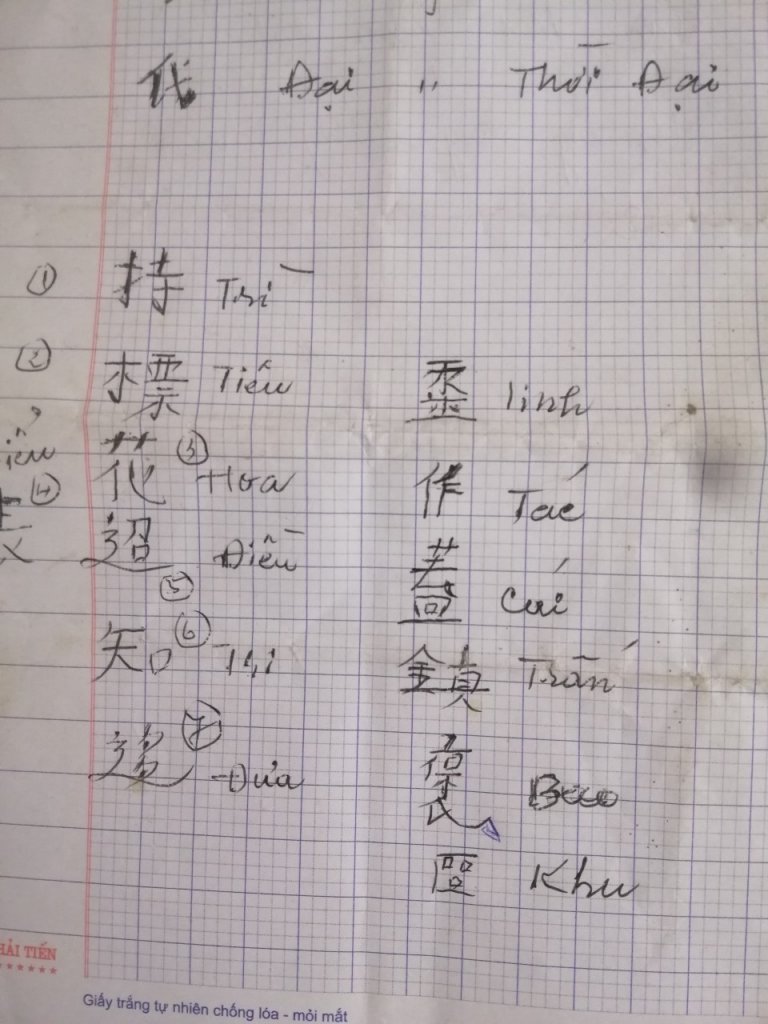 代 Đại " Thời Đại
① 持 Trì
② 標 Tiêu
花 ③ Hoa
④ 迢 Điều
⑤
知 ⑥ Tri
⑦ Đưa
linh
作 Tác
蓋 Cái
鎮 Trấn
褒 Bao
區 Khu
HẢI TIẾN
Giấy trắng tự nhiên chống lóa - mỏi mắt